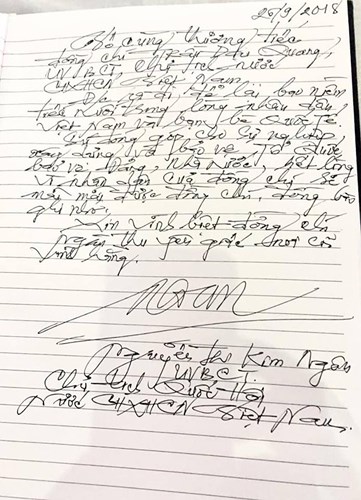 26/9/2018
Vô cùng thương tiếc
đồng chí Trần Đại Quang,
UVBCT, Chủ tịch nước
CHXHCN Việt Nam.
ra đi để lại bao niềm
tiếc thương trong lòng nhân dân
Việt Nam và bạn bè Quốc tế
Sự đóng góp cho sự nghiệp
xây dựng và bảo vệ Tổ Quốc
bảo vệ Đảng, nhà nước, hết lòng
vì nhân dân của đồng chí sẽ
mãi mãi được đồng chí, đồng bào
ghi nhớ.
Xin vĩnh biệt đồng chí
ngàn thu yên giấc nơi cõi
vĩnh hằng.
Ngân
Nguyễn Thị Kim Ngân
UVBCT
Chủ tịch Quốc Hội
nước CHXHCN Việt Nam.